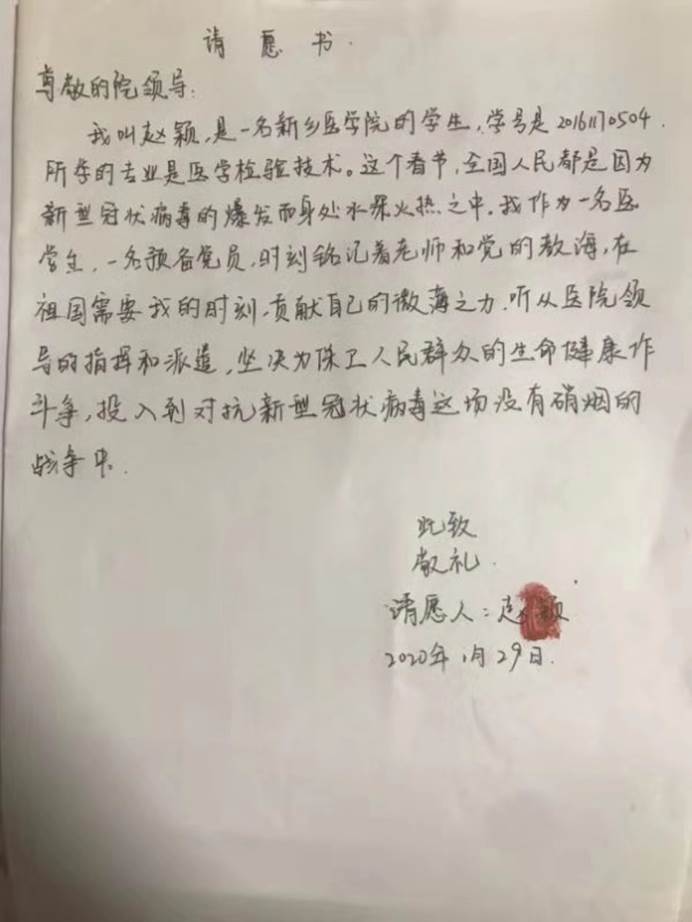 请愿书.
尊敬的院领导:
我叫赵颖,是一名新乡医学院的学生,学号是20161170504.
所学的专业是医学检验技术。这个春节,全国人民都是因为
新型冠状病毒的爆发而身处水深火热之中.我作为一名医
学生,一名预备党员,时刻铭记着老师和党的教诲,在
祖国需要我的时刻,贡献自己的微薄之力.听从医院领
导的指挥和派遣,坚决为保卫人民群众的生命健康作
斗争,投入到对抗新型冠状病毒这场没有硝烟的
战争中.
此致
敬礼.
请愿人:赵颖
2020年1月29日.